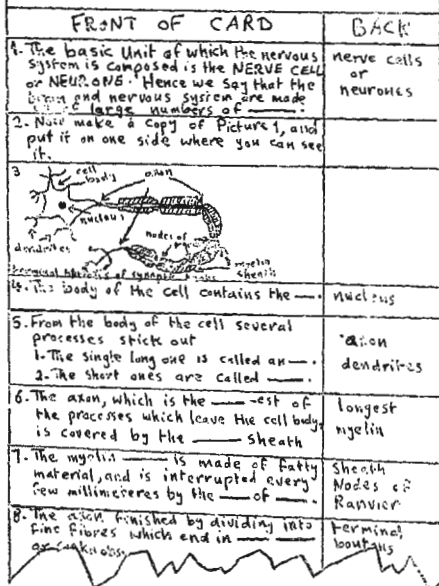 FRONT OF CARD
BACK
1. The basic Unit of which the nervous
system is composed is the NERVE CELL
or NEURONE. Hence we say that the
brain and nervous system are made
large numbers of —.
nerve cells
or
neurones
2. Now make a copy of Picture 1, and
put it on one side where you can see
it.
3
cell
body
axon
nucleus
nodes of
dendrites
myelin
sheath
4. The body of the cell contains the —.
nucleus
5. From the body of the cell several
processes stick out
1. The single long one is called an —.
2. The short ones are called —.
axon
dendrites
6. The axon, which is the —est of
the processes which leave the cell body,
is covered by the — sheath
longest
myelin
7. The myelin — is made of fatty
material, and is interrupted every
few millimeteres by the — of —.
Sheath
Nodes of
Ranvier
8. The axon finished by dividing into
fine fibres which end in — —
terminal
boutons